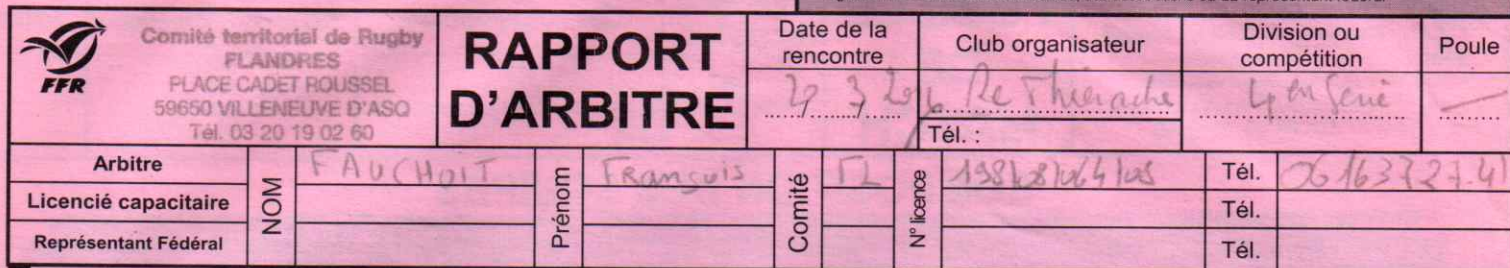 Comité territorial de Rugby
FLANDRES
PLACE CADET ROUSSEL
59650 VILLENEUVE D'ASQ
Tél. 03 20 19 02 60
FFR
RAPPORT
D'ARBITRE
Date de la
rencontre
Club organisateur
Division ou
compétition
Poule
Tél. :
Arbitre
Licencié capacitaire
Représentant Fédéral
NOM
FAUCHOIT
Prénom
François
Comité
FL
N° licence
Tél.
Tél.
Tél.